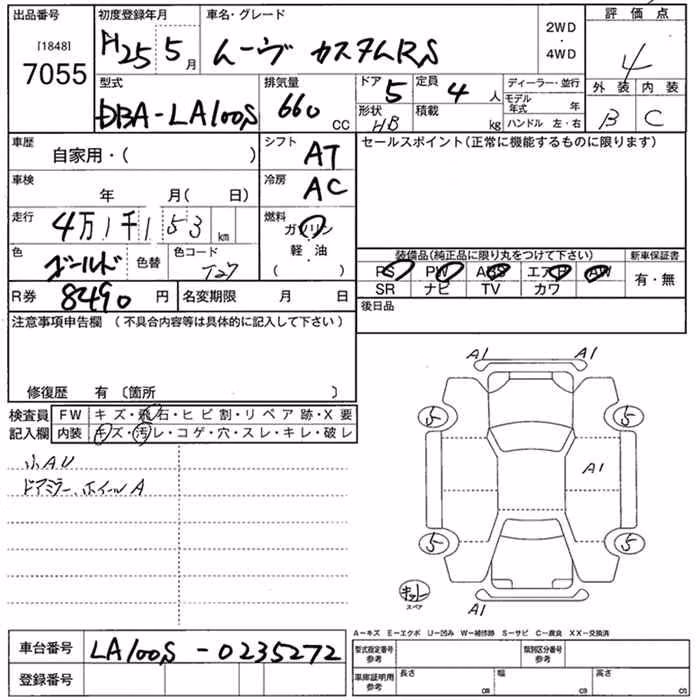 出品番号
[1848]
7055
初度登録年月
H25 5月
車名・グレード
ムーヴ カスタムRS
2WD
・
4WD
評価点
4
外装 内装
B C
型式
DBA-LA100S
排気量
660 CC
ドア
5
定員
4人
形状
HB
積載
kg
ディーラー・並行
モデル年式 年
ハンドル 左・右
車歴
自家用・( )
シフト
AT
セールスポイント(正常に機能するものに限ります)
車検
年 月( 日)
冷房
AC
走行
4万1千153km
燃料
ガソリン
軽・油
( )
色
ゴールド
色替
色コード
T27
装備品(純正品に限り丸をつけて下さい)
PS PW ABS エアB AW
SR ナビ TV カワ
新車保証書
有・無
R券
8490円
名変期限 月 日
後日品
注意事項申告欄 (不具合内容等は具体的に記入して下さい)
修復歴 有 〔箇所 〕
検査員
記入欄
FW キズ・飛石・ヒビ割・リペア跡・X要
内装 キズ・汚レ・コゲ・穴・スレ・キレ・破レ
小AU
ドアミラー、ホイールA
A1 A1
5 5
A1
5 5
キット
スペア
A1
A−キズ E−エクボ U−凹み W−補修跡 S−サビ C−腐食 XX−交換済
車台番号
LA100S-0235272
登録番号
型式指定番号
参考
類別区分番号
参考
車庫証明用
参考
長さ cm
幅 cm
高さ cm